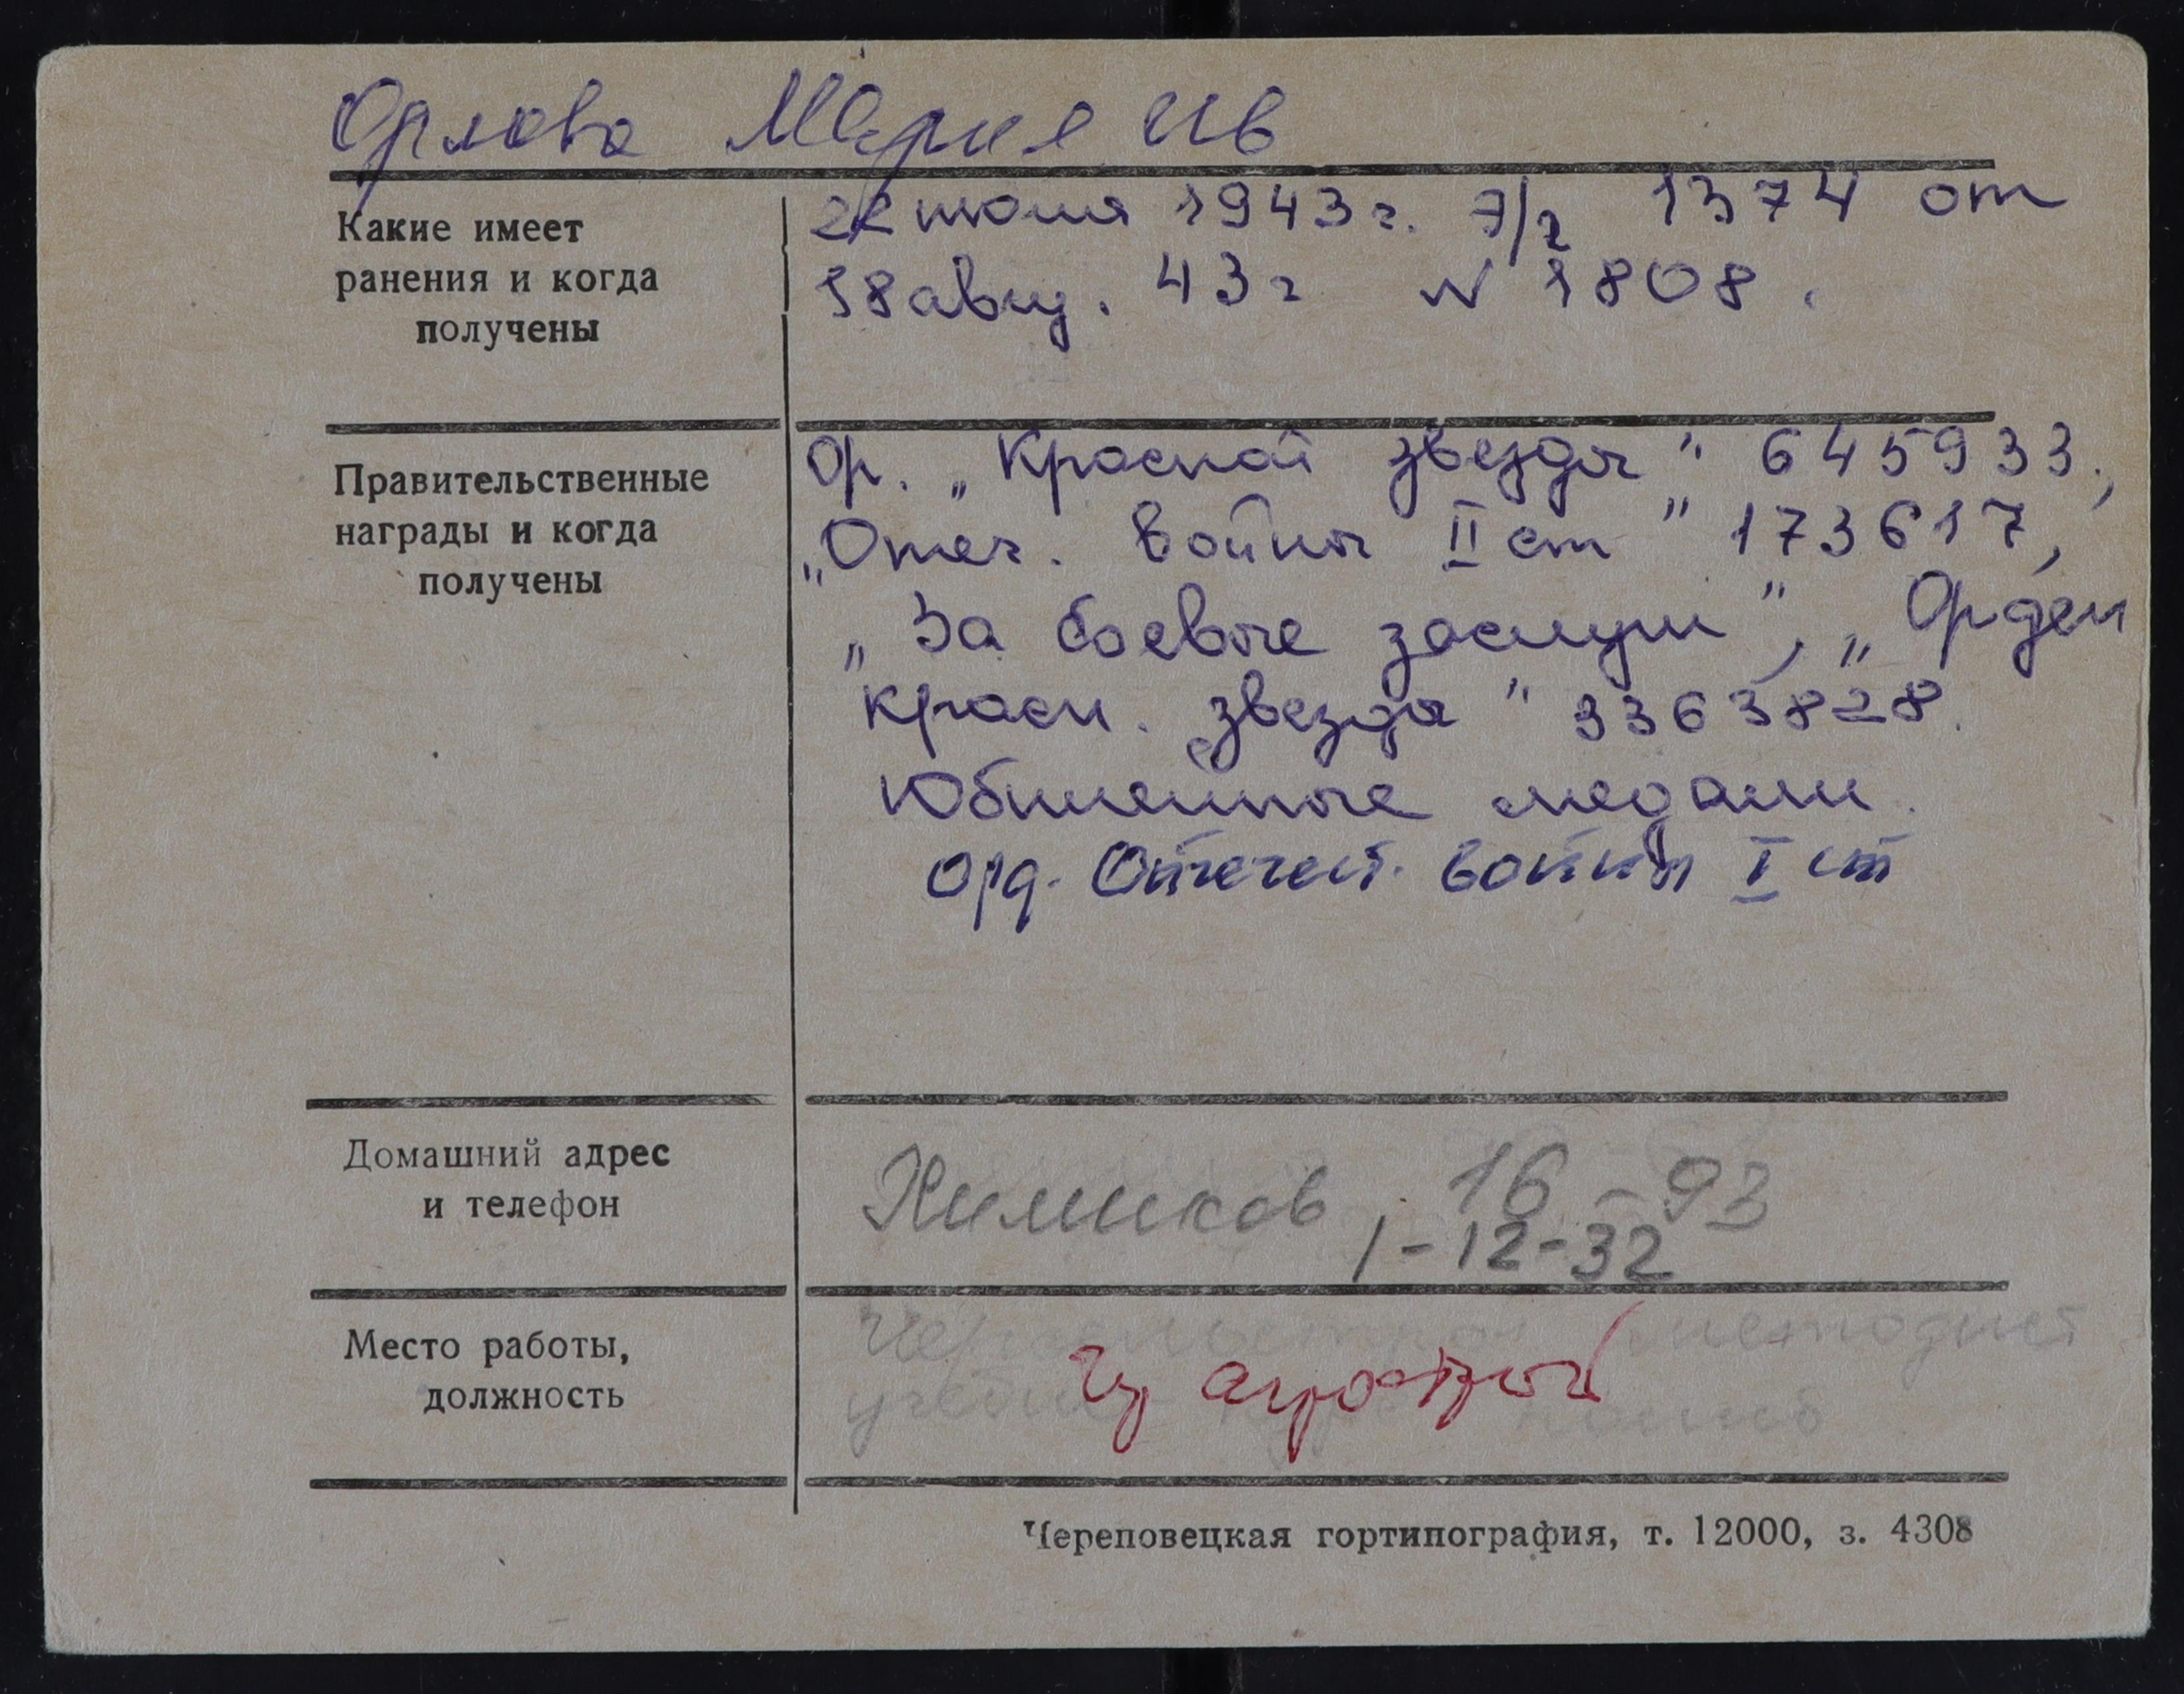 Орлова Мария Ив
Какие имеет
ранения и когда
получены
22 июля 1943 г. Э/г 1374 от
18 авг. 43 г N 1808.
Правительственные
награды и когда
получены
Ор. „Красной звезды" 645933.,
„Отеч. войны II ст" 173617,
„За боевые заслуги", „Орден
красн. звезды" 3363828.
Юбилейные медали.
орд. Отечест. войны I ст
Домашний адрес
и телефон
Химиков, 16-93
1-12-32
Место работы,
должность
методист
Череповецкая гортипография, т. 12000, з. 4308